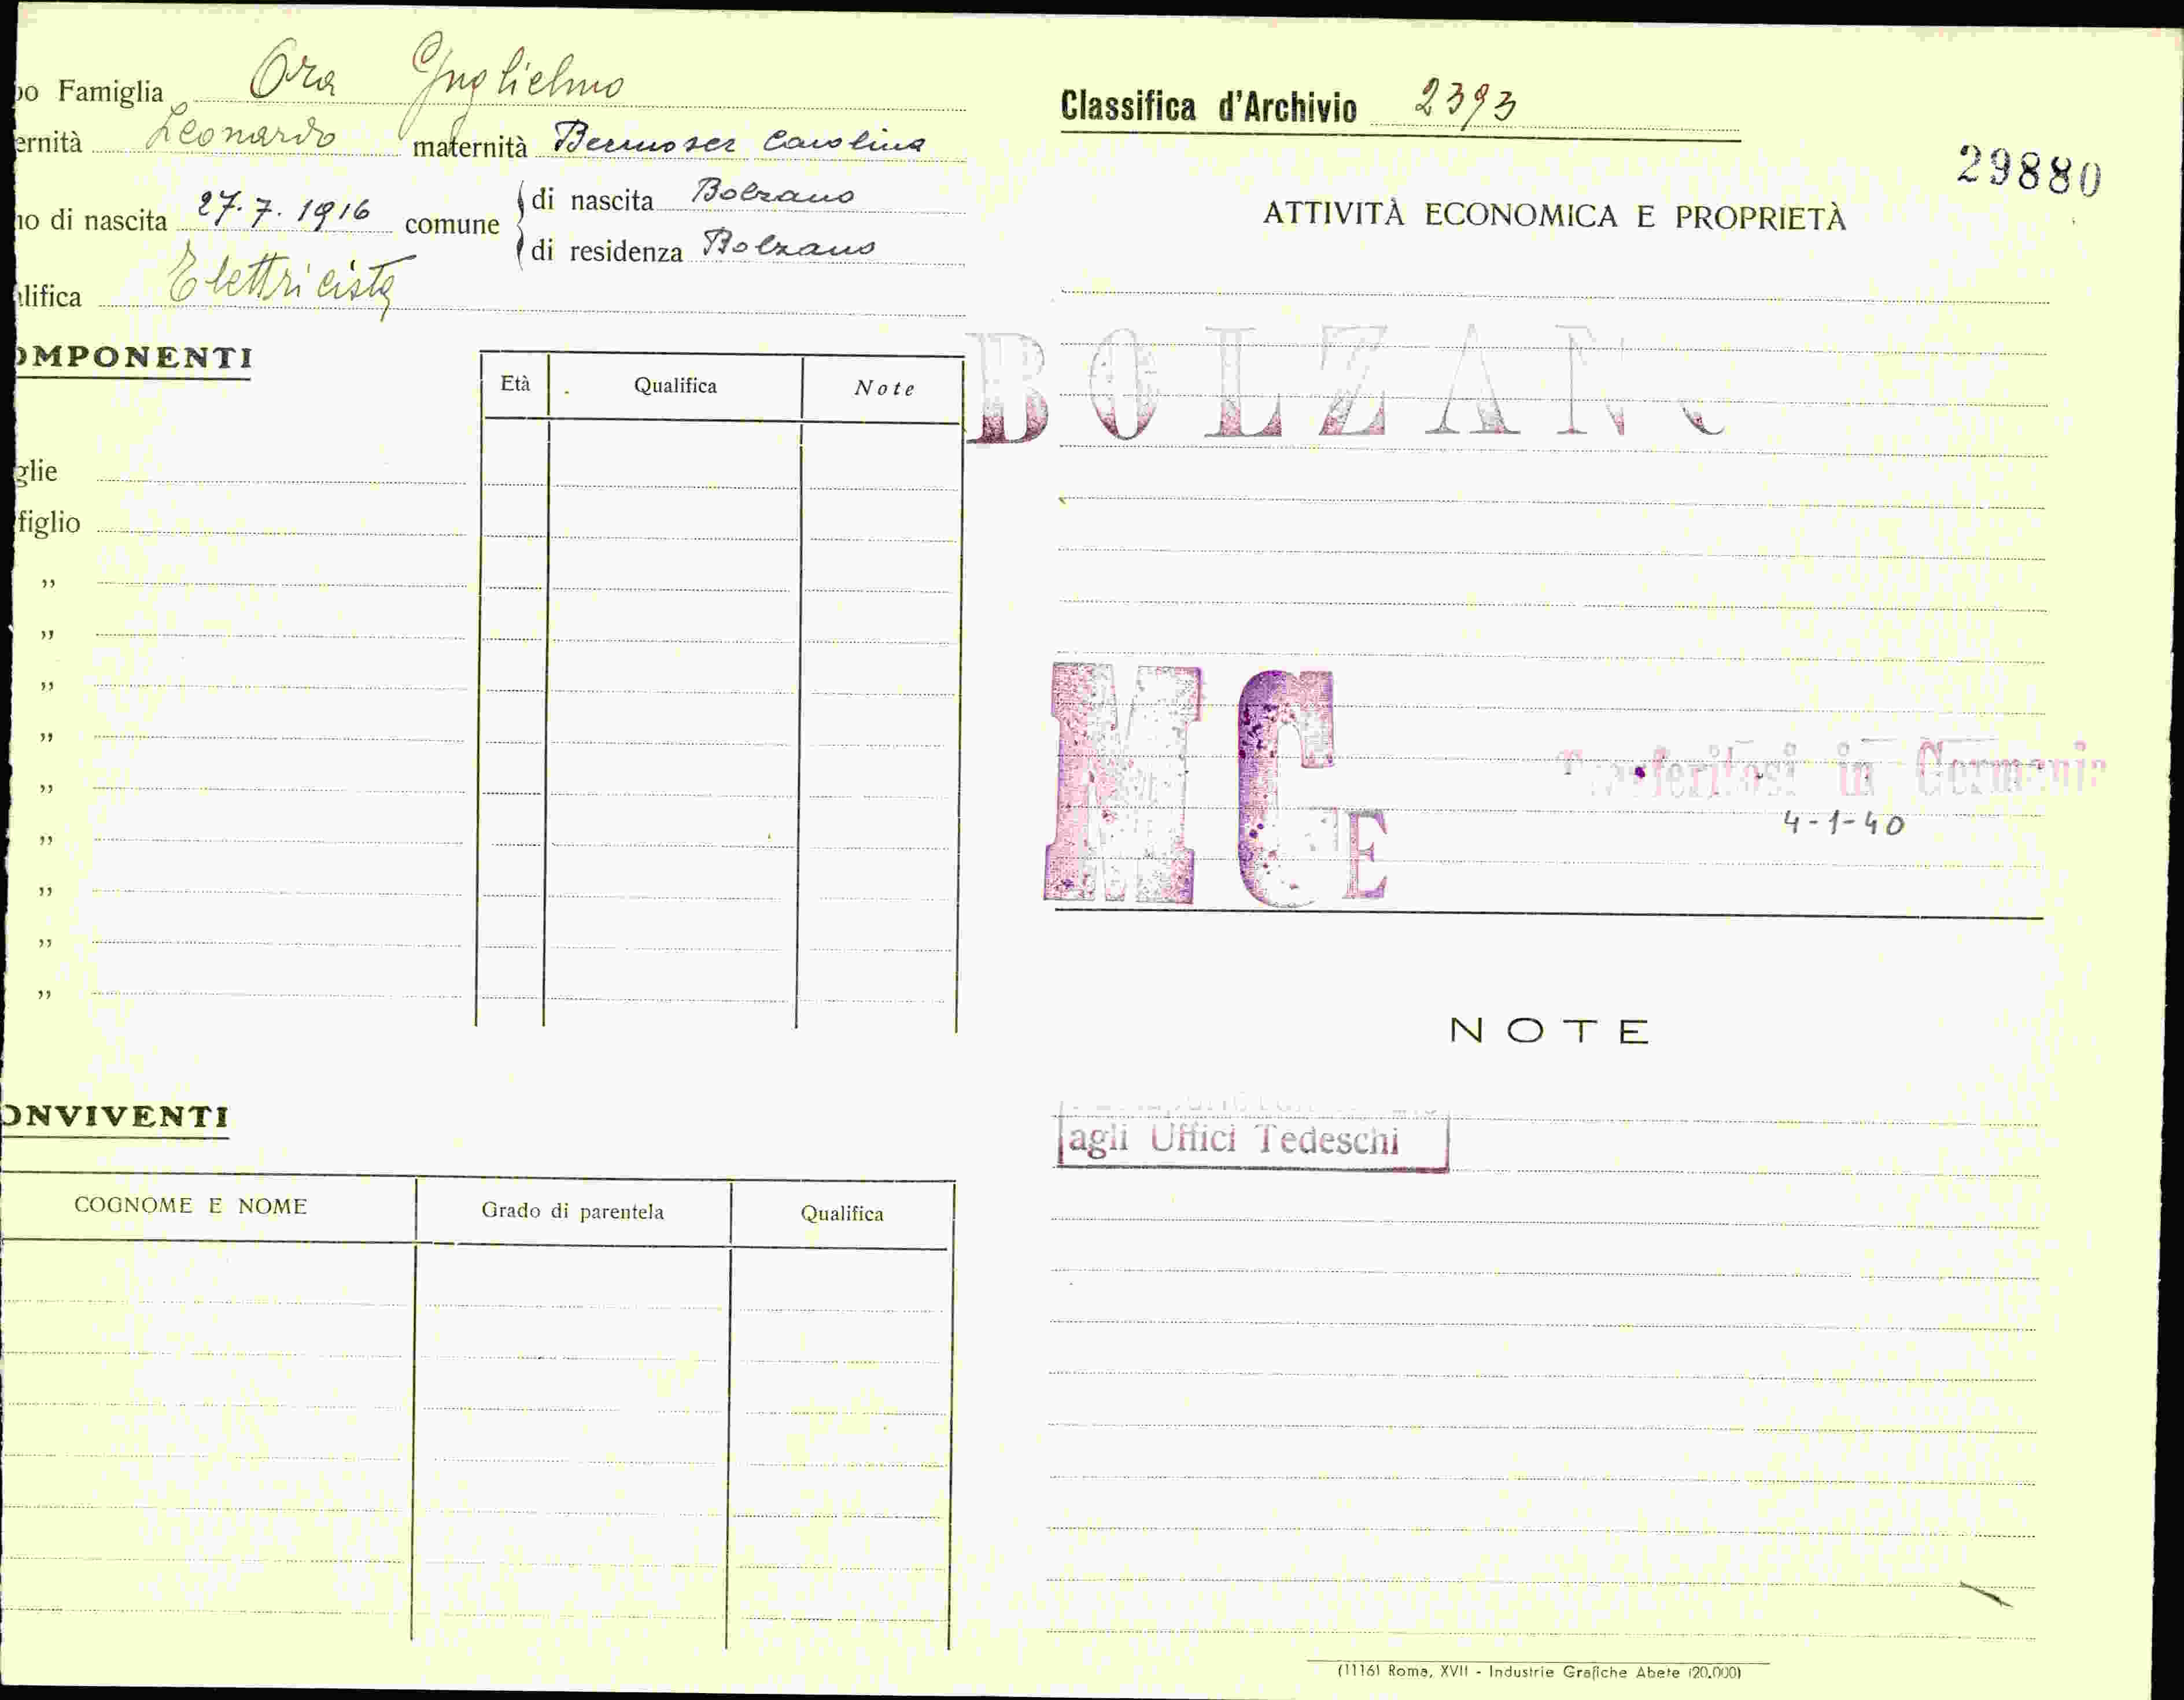 po Famiglia Ora Guglielmo
ernità Leonardo maternità Bermoser Carolina
no di nascita 27. 7. 1916 comune di nascita Bolzano
di residenza Bolzano
alifica Elettricista
OMPONENTI
Età Qualifica Note
glie
figlio
"
"
"
"
"
"
"
"
"
ONVIVENTI
COGNOME E NOME Grado di parentela Qualifica
Classifica d'Archivio 2393
29880
ATTIVITÀ ECONOMICA E PROPRIETÀ
BOLZANO
MCE
Trasferitosi in Germania
4-1-40
NOTE
agli Uffici Tedeschi
(1116) Roma, XVII - Industrie Grafiche Abete (20.000)